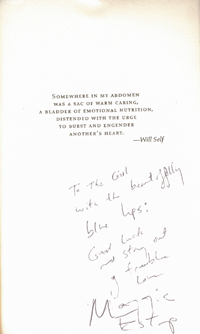 SOMEWHERE IN MY ABDOMEN
WAS A SAC OF WARM CARING,
A BLADDER OF EMOTIONAL NUTRITION,
DISTENDED WITH THE URGE
TO BURST AND ENGENDER
ANOTHER'S HEART.
—Will Self
To The Girl
with the beautifully
blue lips:
Good luck
and stay out
of trouble
Love
Maggie
Estep